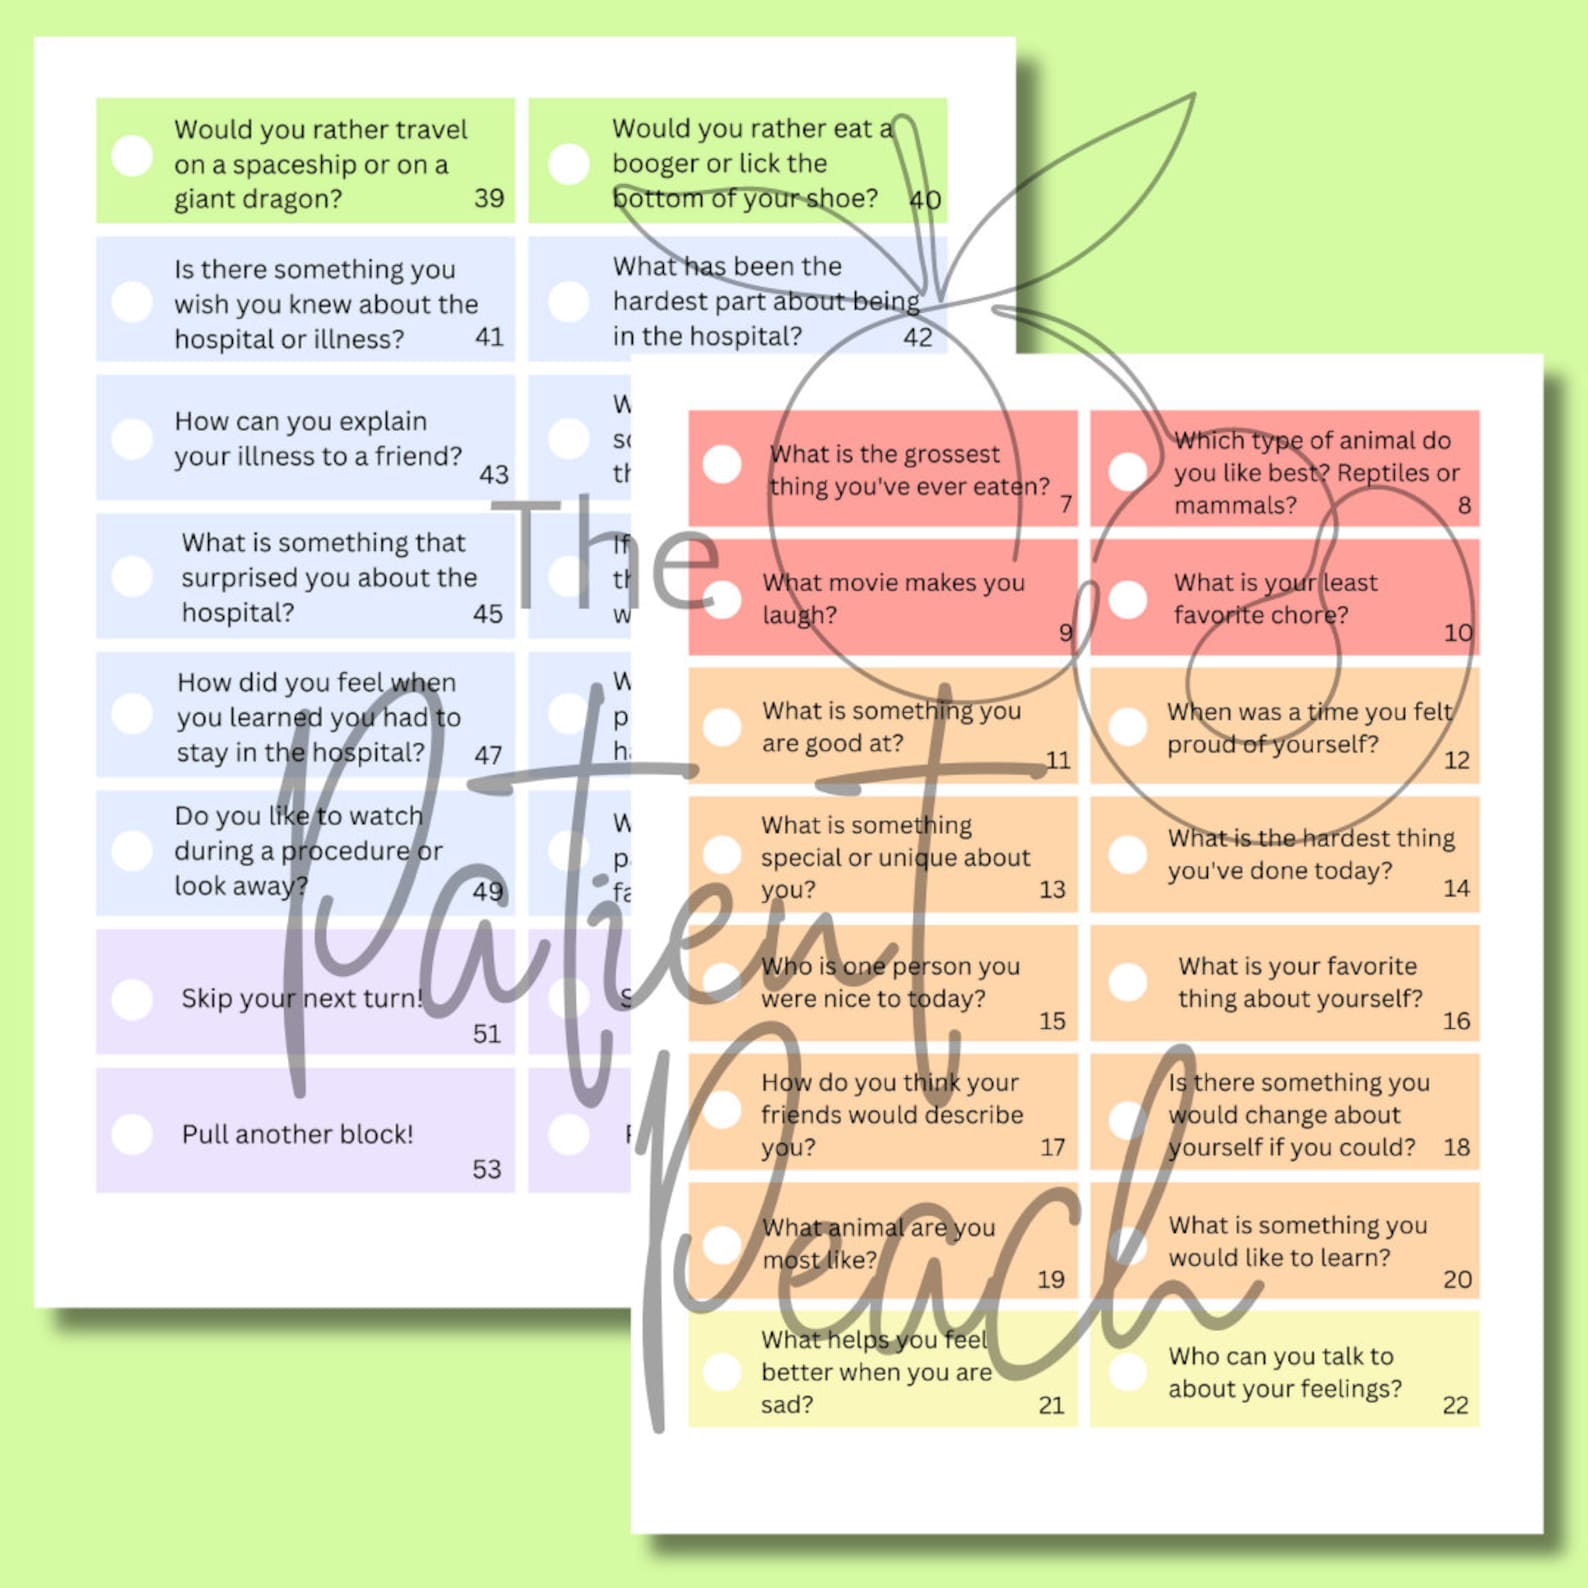 Would you rather travel
on a spaceship or on a
giant dragon?
39
Would you rather eat a
booger or lick the
bottom of your shoe?
40
Is there something you
wish you knew about the
hospital or illness?
41
What has been the
hardest part about being
in the hospital?
42
How can you explain
your illness to a friend?
43
What is something that
surprised you about the
hospital?
45
If
How did you feel when
you learned you had to
stay in the hospital?
47
Do you like to watch
during a procedure or
look away?
49
Skip your next turn!
51
Pull another block!
53
What is the grossest
thing you've ever eaten?
7
Which type of animal do
you like best? Reptiles or
mammals?
8
What movie makes you
laugh?
9
What is your least
favorite chore?
10
What is something you
are good at?
11
When was a time you felt
proud of yourself?
12
What is something
special or unique about
you?
13
What is the hardest thing
you've done today?
14
Who is one person you
were nice to today?
15
What is your favorite
thing about yourself?
16
How do you think your
friends would describe
you?
17
Is there something you
would change about
yourself if you could?
18
What animal are you
most like?
19
What is something you
would like to learn?
20
What helps you feel
better when you are
sad?
21
Who can you talk to
about your feelings?
22
The
Patient
Peach